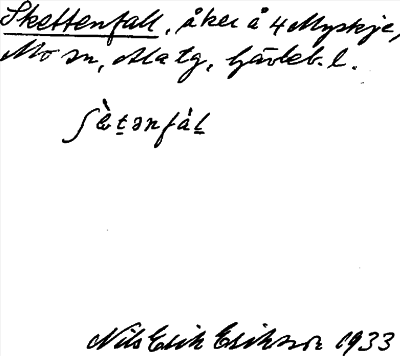 Skettenfall, åker å 4 Myskje,
Mo sn, Ala tg, Gävleb. l.
ʃɛ̀t̠ənfàl̠
Nils Erik Eriksson 1933